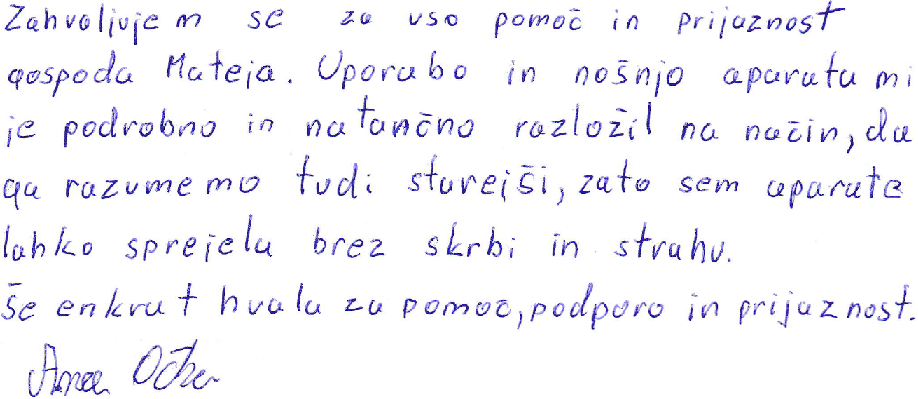 Zahvaljujem se za vso pomoč in prijaznost
gospoda Mateja. Uporabo in nošnjo aparata mi
je podrobno in natančno razložil na način, da
ga razumemo tudi starejši, zato sem aparate
lahko sprejela brez skrbi in strahu.
Še enkrat hvala za pomoč, podporo in prijaznost.